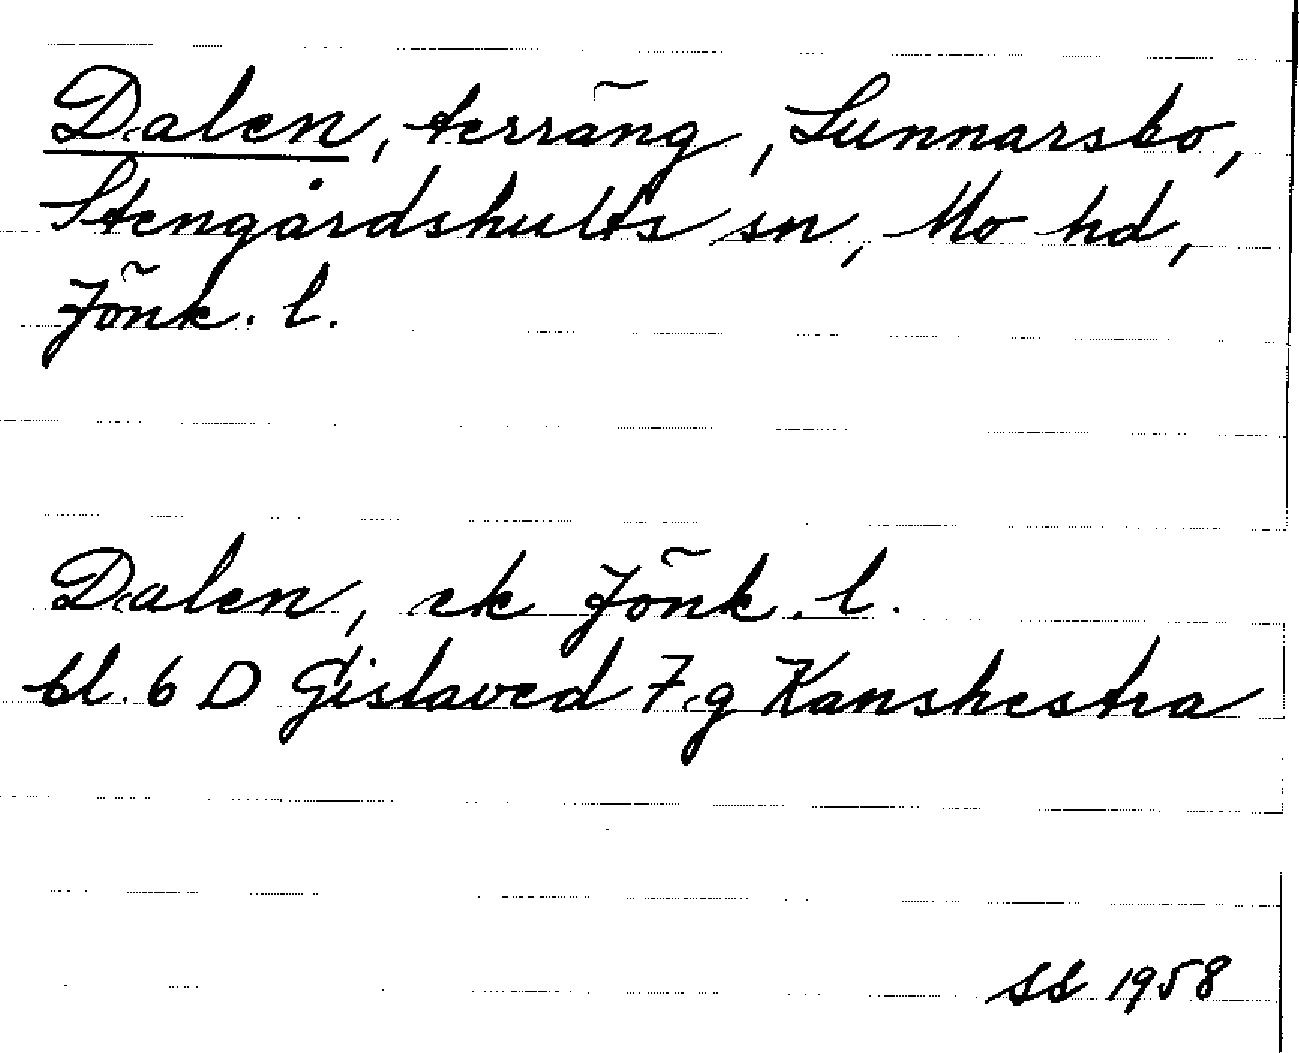 Dalen, terräng, Sunnarsbo,
Stengårdshults sn, Mo hd,
Jönk. l.
Dalen, ek Jönk. l.
bl. 6 D Gislaved 7 g Kanshestra
SS 1958